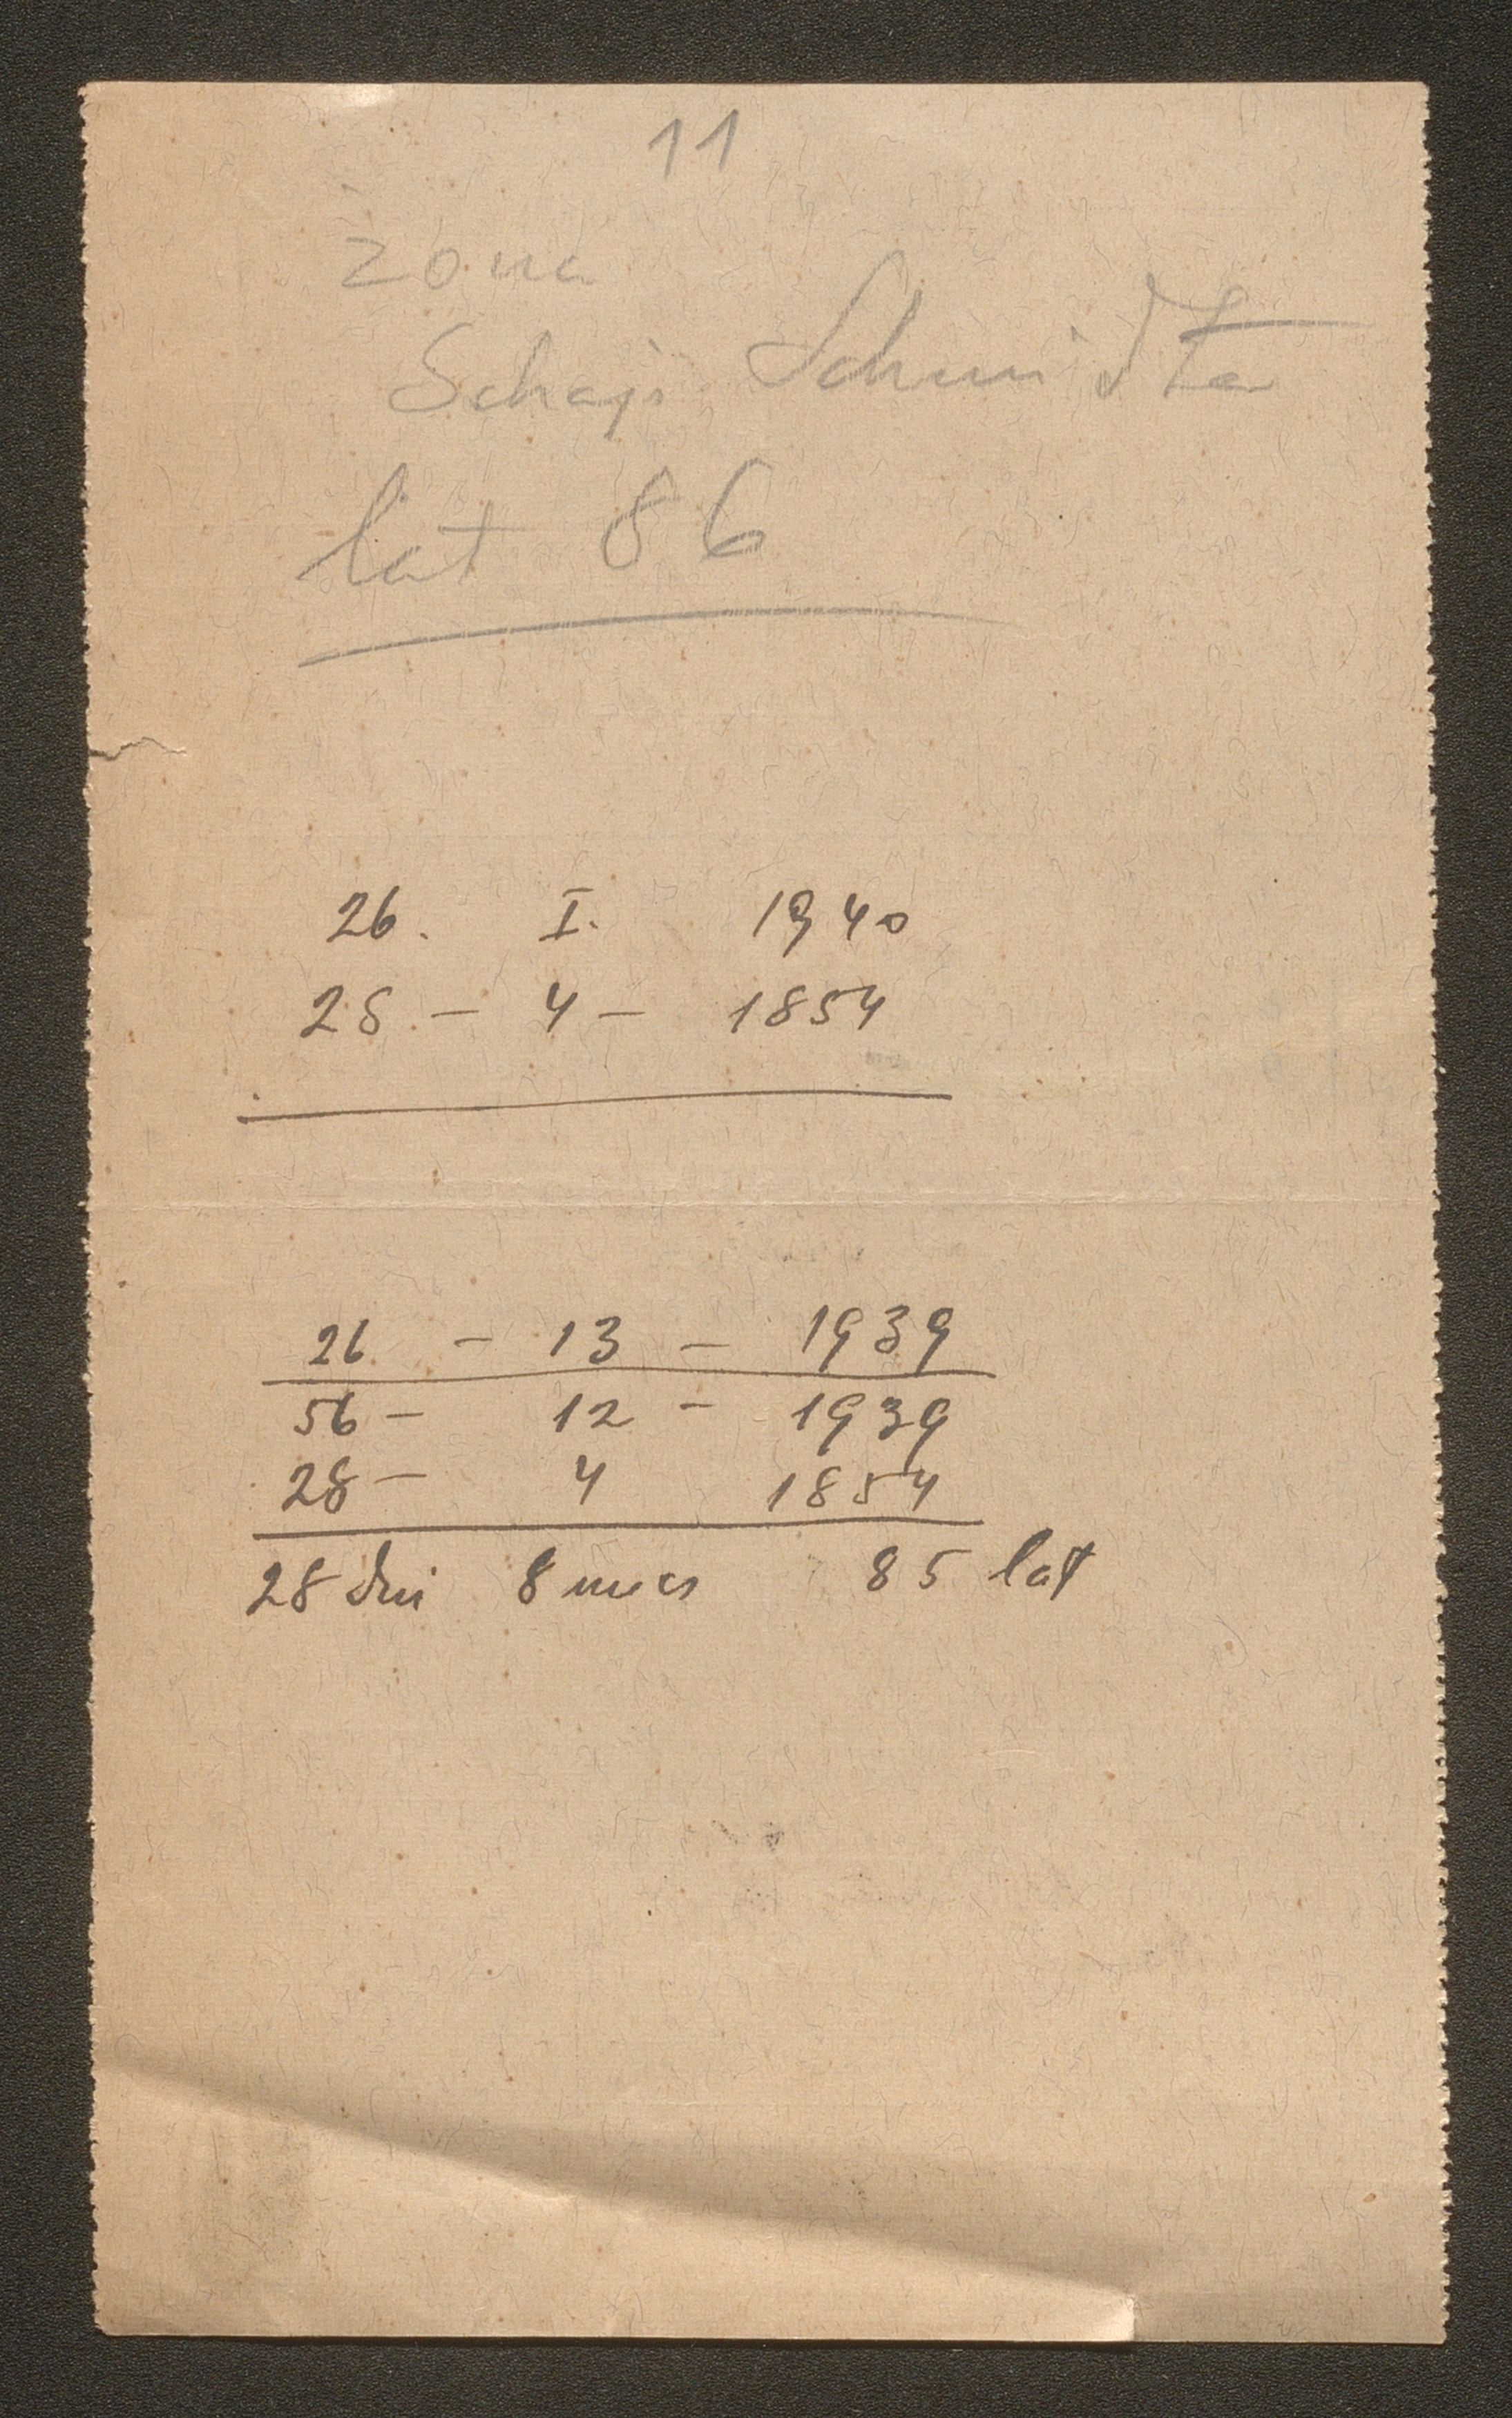 11
zona
Schaji Schmidta
lat 86
26. I. 1940
28 - 4 - 1854
26 - 13 - 1939
56 - 12 - 1939
28 - 4 1854
28 dni 8 mies 85 lat